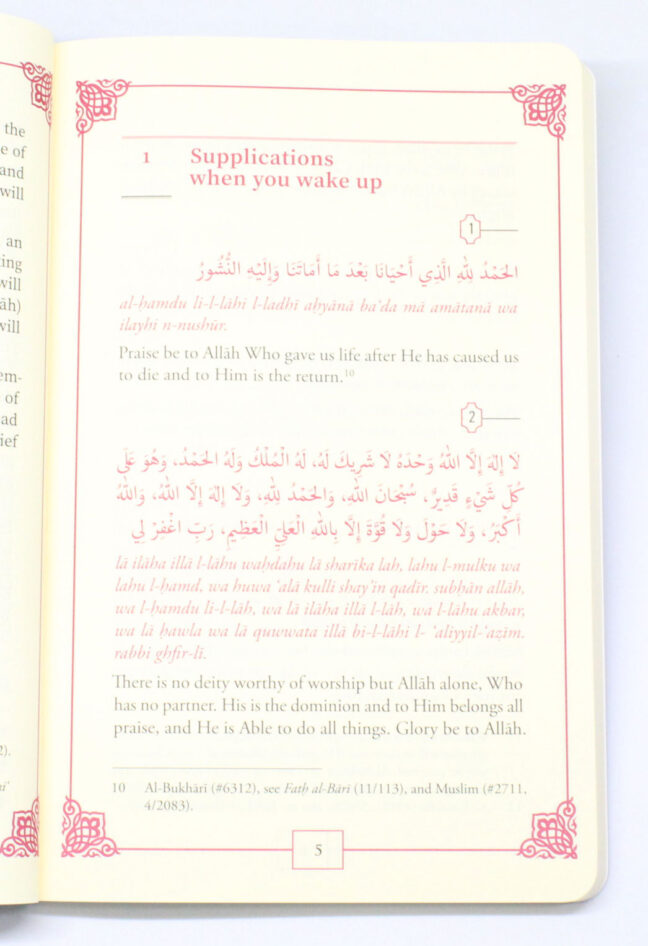 the
e of
and
will
an
ting
will
āh)
will
em-
of
ad
ief
2).
1 Supplications
when you wake up
1
الحَمْدُ لِلّٰهِ الَّذِي أَحْيَانَا بَعْدَ مَا أَمَاتَنَا وَإِلَيْهِ النُّشُورُ
al-ḥamdu li-l-lāhi l-ladhī aḥyānā ba‘da mā amātanā wa
ilayhi n-nushūr.
Praise be to Allāh Who gave us life after He has caused us
to die and to Him is the return.10
2
لَا إِلٰهَ إِلَّا اللّٰهُ وَحْدَهُ لَا شَرِيكَ لَهُ، لَهُ الْمُلْكُ وَلَهُ الحَمْدُ، وَهُوَ عَلَى
كُلِّ شَيْءٍ قَدِيرٌ، سُبْحَانَ اللّٰهِ، وَالحَمْدُ لِلّٰهِ، وَلَا إِلٰهَ إِلَّا اللّٰهُ، وَاللّٰهُ
أَكْبَرُ، وَلَا حَوْلَ وَلَا قُوَّةَ إِلَّا بِاللّٰهِ الْعَلِيِّ الْعَظِيمِ، رَبِّ اغْفِرْ لِي
lā ilāha illā l-lāhu waḥdahu lā sharīka lah, lahu l-mulku wa
lahu l-ḥamd, wa huwa ‘alā kulli shay’in qadīr. subḥān allāh,
wa l-ḥamdu li-l-lāh, wa lā ilāha illā l-lāh, wa l-lāhu akbar,
wa lā ḥawla wa lā quwwata illā bi-l-lāhi l- ‘aliyyil-‘aẓīm.
rabbi ghfir-lī.
There is no deity worthy of worship but Allāh alone, Who
has no partner. His is the dominion and to Him belongs all
praise, and He is Able to do all things. Glory be to Allāh.
10 Al-Bukhāri (#6312), see Fatḥ al-Bāri (11/113), and Muslim (#2711,
4/2083).
5